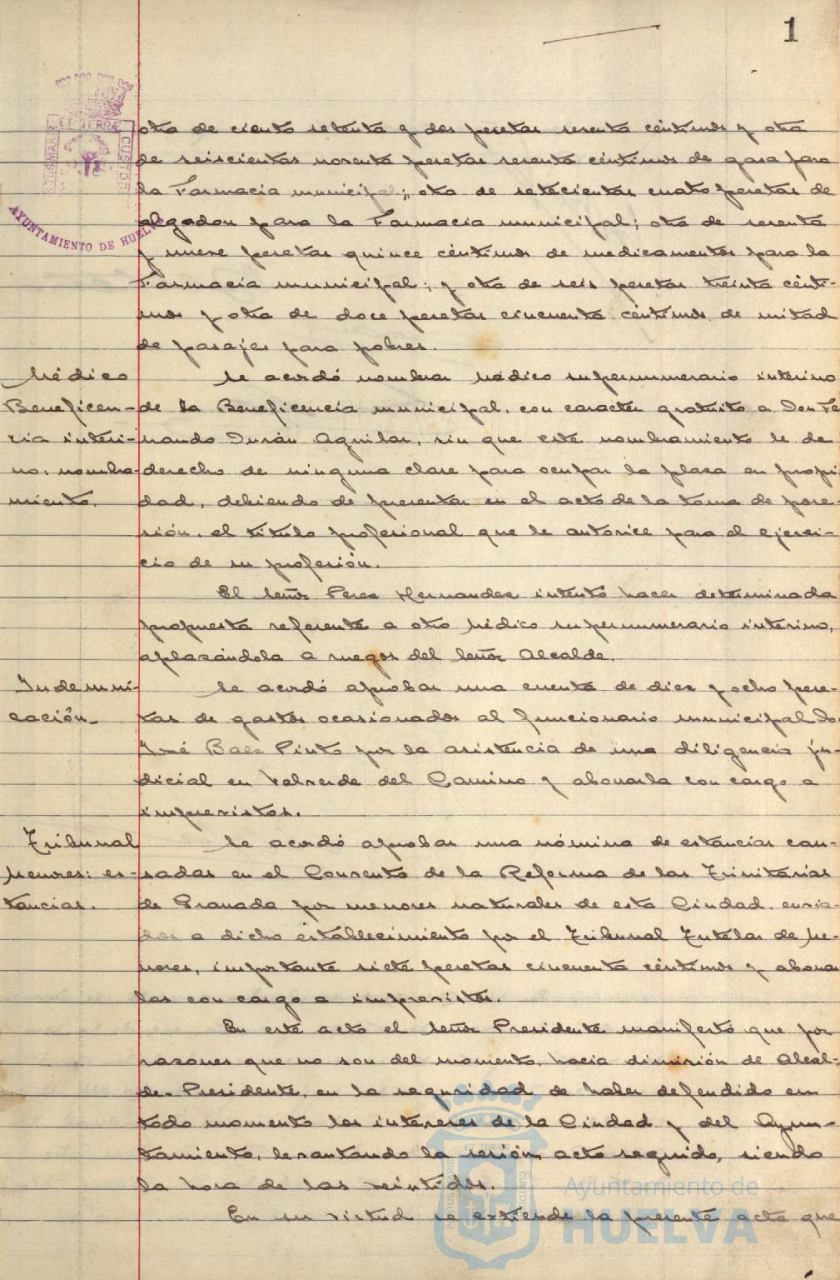 1
PORTUS MARIS
ET TERRAE
CUSTODIA
AYUNTAMIENTO DE HUELVA
otra de ciento setenta y dos pesetas sesenta céntimos y otra
de seiscientas noventa pesetas sesenta céntimos de gasa para
la Farmacia municipal; otra de setecientas cuatro pesetas de
algodon para la Farmacia municipal; otra de sesenta
y nueve pesetas quince céntimos de medicamentos para la
Farmacia municipal; y otra de seis pesetas treinta cénti-
mos y otra de doce pesetas cincuenta céntimos de mitad
de pasajes para pobres.
Médico
Beneficen-
cia interi-
no: nombra-
miento.
Se acordó nombrar Médico supernumerario interino
de la Beneficencia municipal, con caracter gratuito a Don Fe
nando Durán Aguilar, sin que este nombramiento le de
derecho de ninguna clase para ocupar la plaza en propi
dad, debiendo de presentar en el acto de la toma de pose-
sión, el título profesional que le autorice para el ejerci-
cio de su profesión.
El Señor Perez Hernandez intentó hacer determinada
propuesta referente a otro Médico supernumerario interino,
aplazándola a ruegos del Señor Alcalde.
Indemni-
zación.
Se acordó aprobar una cuenta de diez y ocho pese-
tas de gastos ocasionados al funcionario municipal Do
José Baez Pinto por la asistencia de una diligencia ju-
dicial en Valverde del Camino y abonarla con cargo a
imprevistos.
Tribunal
Menores: es-
tancias.
Se acordó aprobar una nómina de estancias cau-
sadas en el Convento de la Reforma de las Trinitarias
de Granada por menores naturales de esta Ciudad, envia-
dos a dicho establecimiento por el Tribunal Tutelar de Me-
nores, importante siete pesetas cincuenta céntimos y abona
las con cargo a imprevistos.
En este acto el Señor Presidente manifestó que por
razones que no son del momento, hacia dimisión de Alcal-
de-Presidente, en la seguridad de haber defendido en
todo momento los intereses de la Ciudad y del Ayun-
tamiento, levantando la sesión acto seguido, siendo
la hora de las veintidos.
En su virtud se extiende la presente acta que
Ayuntamiento de
HUELVA